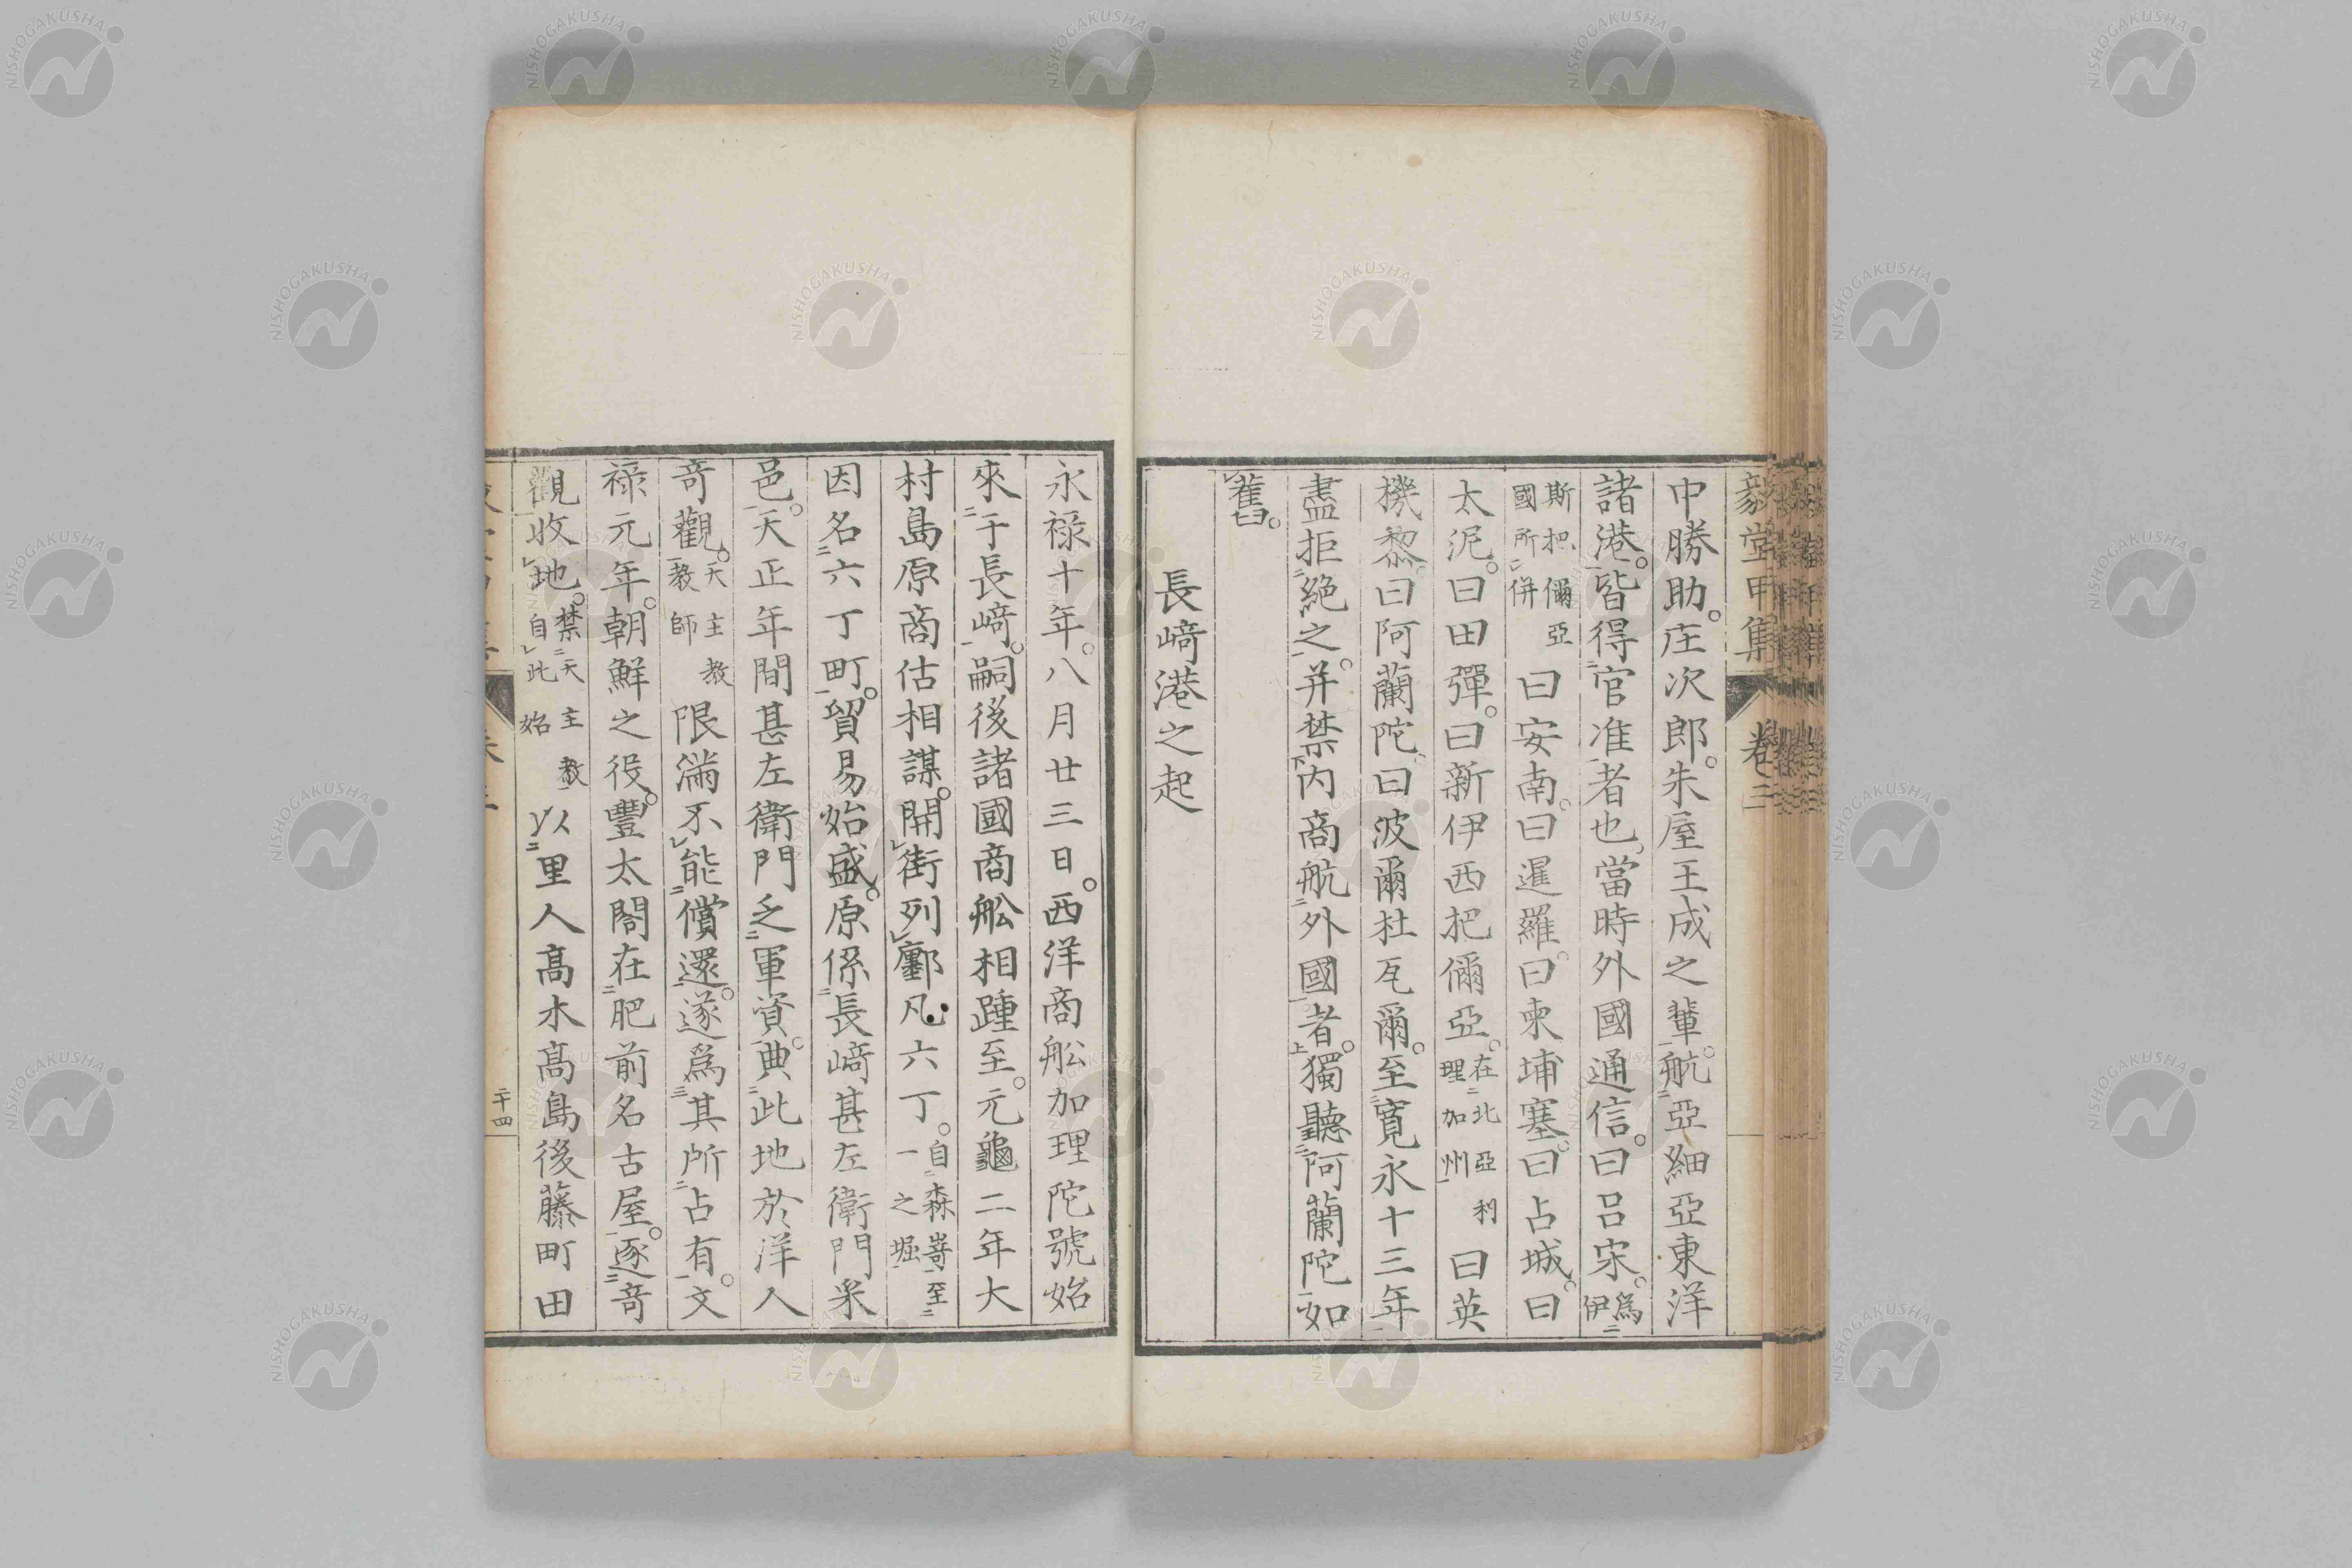 毅堂甲集 卷三
中勝助。庄次郎。朱屋王成之輩。航亞細亞東洋
諸港。皆得官准者也。當時外國通信。曰呂宋。爲伊
斯把儞亞國所併曰安南。曰暹羅。曰柬埔塞。曰占城。曰
太泥。曰田彈。曰新伊西把儞亞。在北亞利理加州曰英
機黎。曰阿蘭陀。曰波爾杜瓦爾。至寬永十三年
盡拒絶之。并禁內商航外國者。獨聽阿蘭陀如
舊。
長﨑港之起
永祿十年。八月廿三日。西洋商舩加理陀號始
來于長﨑。嗣後諸國商舩相踵至。元龜二年大
村島原商估相謀。開街列鄽凡六丁。自森嵜至一之堀
因名六丁町。貿易始盛。原係長﨑甚左衛門采
邑。天正年間甚左衛門乏軍資。典此地於洋人
奇觀。天主教教師限滿不能償還。遂爲其所占有。文
祿元年。朝鮮之役。豐太閤在肥前名古屋。逐奇
觀收地。禁天主教自此始以里人髙木髙島後藤町田
二十四
NISHOGAKUSHA